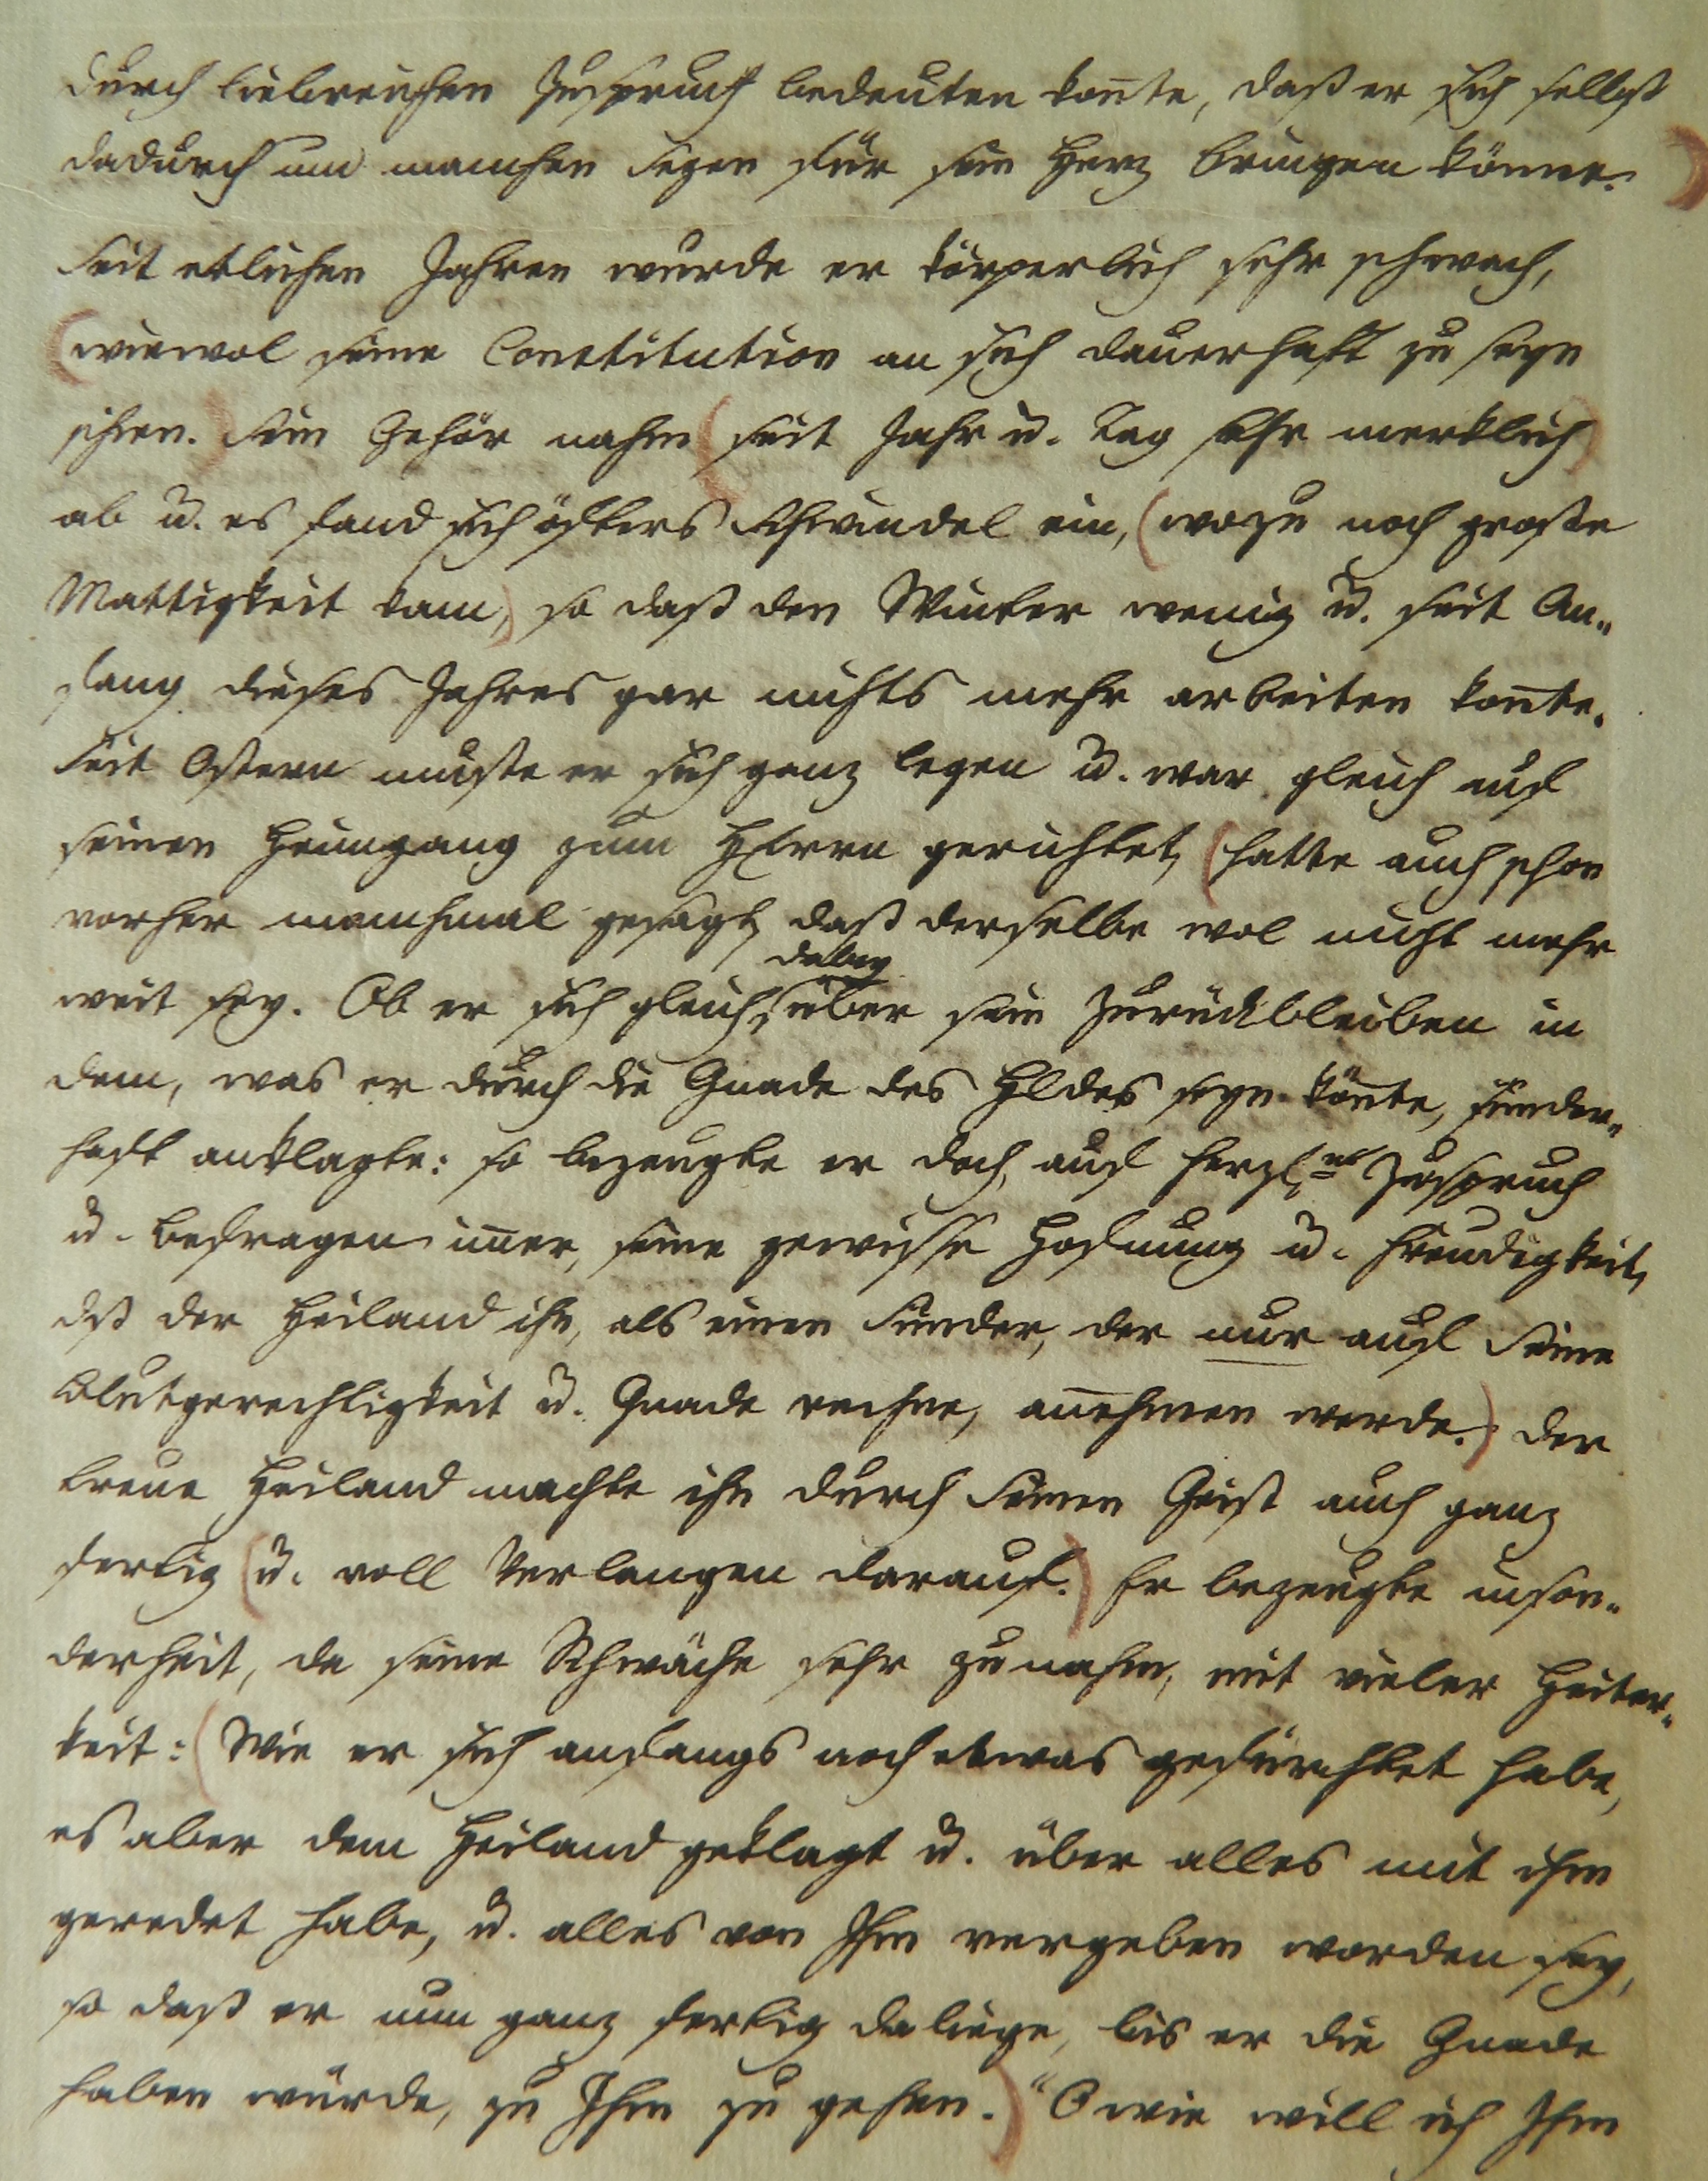 durch liebreichen Zuspruch bedeuten kon̅te, daß er sich selbst
dadurch um manchen Segen für sein Herz bringen könne.)
Seit etlichen Jahren wurde er körperlich sehr schwach,
(wiewol seine Constitution an sich dauerhaft zu seyn
schien.) Sein Gehör nahm (seit Jahr u. Tag sehr merklich)
ab u. es fand sich öfters Schwindel ein, (wozu noch große
Mattigkeit kam,) so daß den Winter wenig u. seit An-
fang dieses Jahres gar nichts mehr arbeiten kon̅te.
Seit Ostern mußte er sich ganz legen u. war gleich auf
seinen Heimgang zum HErrn gerichtet, (hatte auch schon
vorher manchmal gesagt, daß derselbe wol nicht mehr
dabey
weit sey. Ob er sich gleich über sein Zurückbleiben in
dem, was er durch die Gnade des Hldes seyn kön̅te, sünder-
haft anklagte: so bezeugte er doch, auf herzl.es Zuspruch
u. Befragen im̅er, seine gewisse Hofnung u. Freudigkeit,
dß der Heiland ihn, als einen Sünder, der nur auf Seine
Blutgerechtigkeit u. Gnade rechne, an̅ehmen werde.) Der
treue Heiland machte ihn durch Seinen Geist auch ganz
fertig (u. voll Verlangen darauf.) Er bezeugte inson-
derheit, da seine Schwäche sehr zunahm, mit vieler Heiter-
keit: (Wie er sich anfangs noch etwas gefürchtet habe,
es aber dem Heiland geklagt u. über alles mit ihm
geredet habe, u. alles von Ihm vergeben worden sey,
so daß er nun ganz fertig daliege, bis er die Gnade
haben würde, zu Ihm zu gehen.) "O wie will ich Ihm